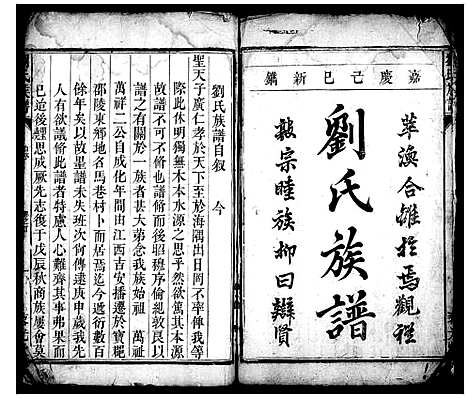 嘉慶己巳新鐫
萃渙合雒於焉觀程
劉氏族譜
敍宗睦族抑曰辨賢
劉氏族譜自叙
今
聖天子廣仁孝於天下至於海隅出日罔不率俾我等
際此休明獨無木本水源之思乎然欲篤其本源
譜不可不修也譜而後昭班序倫紀敦良以
譜之有關於一族者甚大弟念我族始祖 萬祉
萬祥二公自成化年間由江西吉安播遷於寶郡
邵陵東鄉地名馬巷村卜而居焉迄今遞衍數百
餘年矣以故墨譜未失班次何傳逮庚申歲我先
人有欲議修此譜者特慮人心難齊其事弗果而
已迨後趕思成厥先志復于戊辰秋商族屢會莫